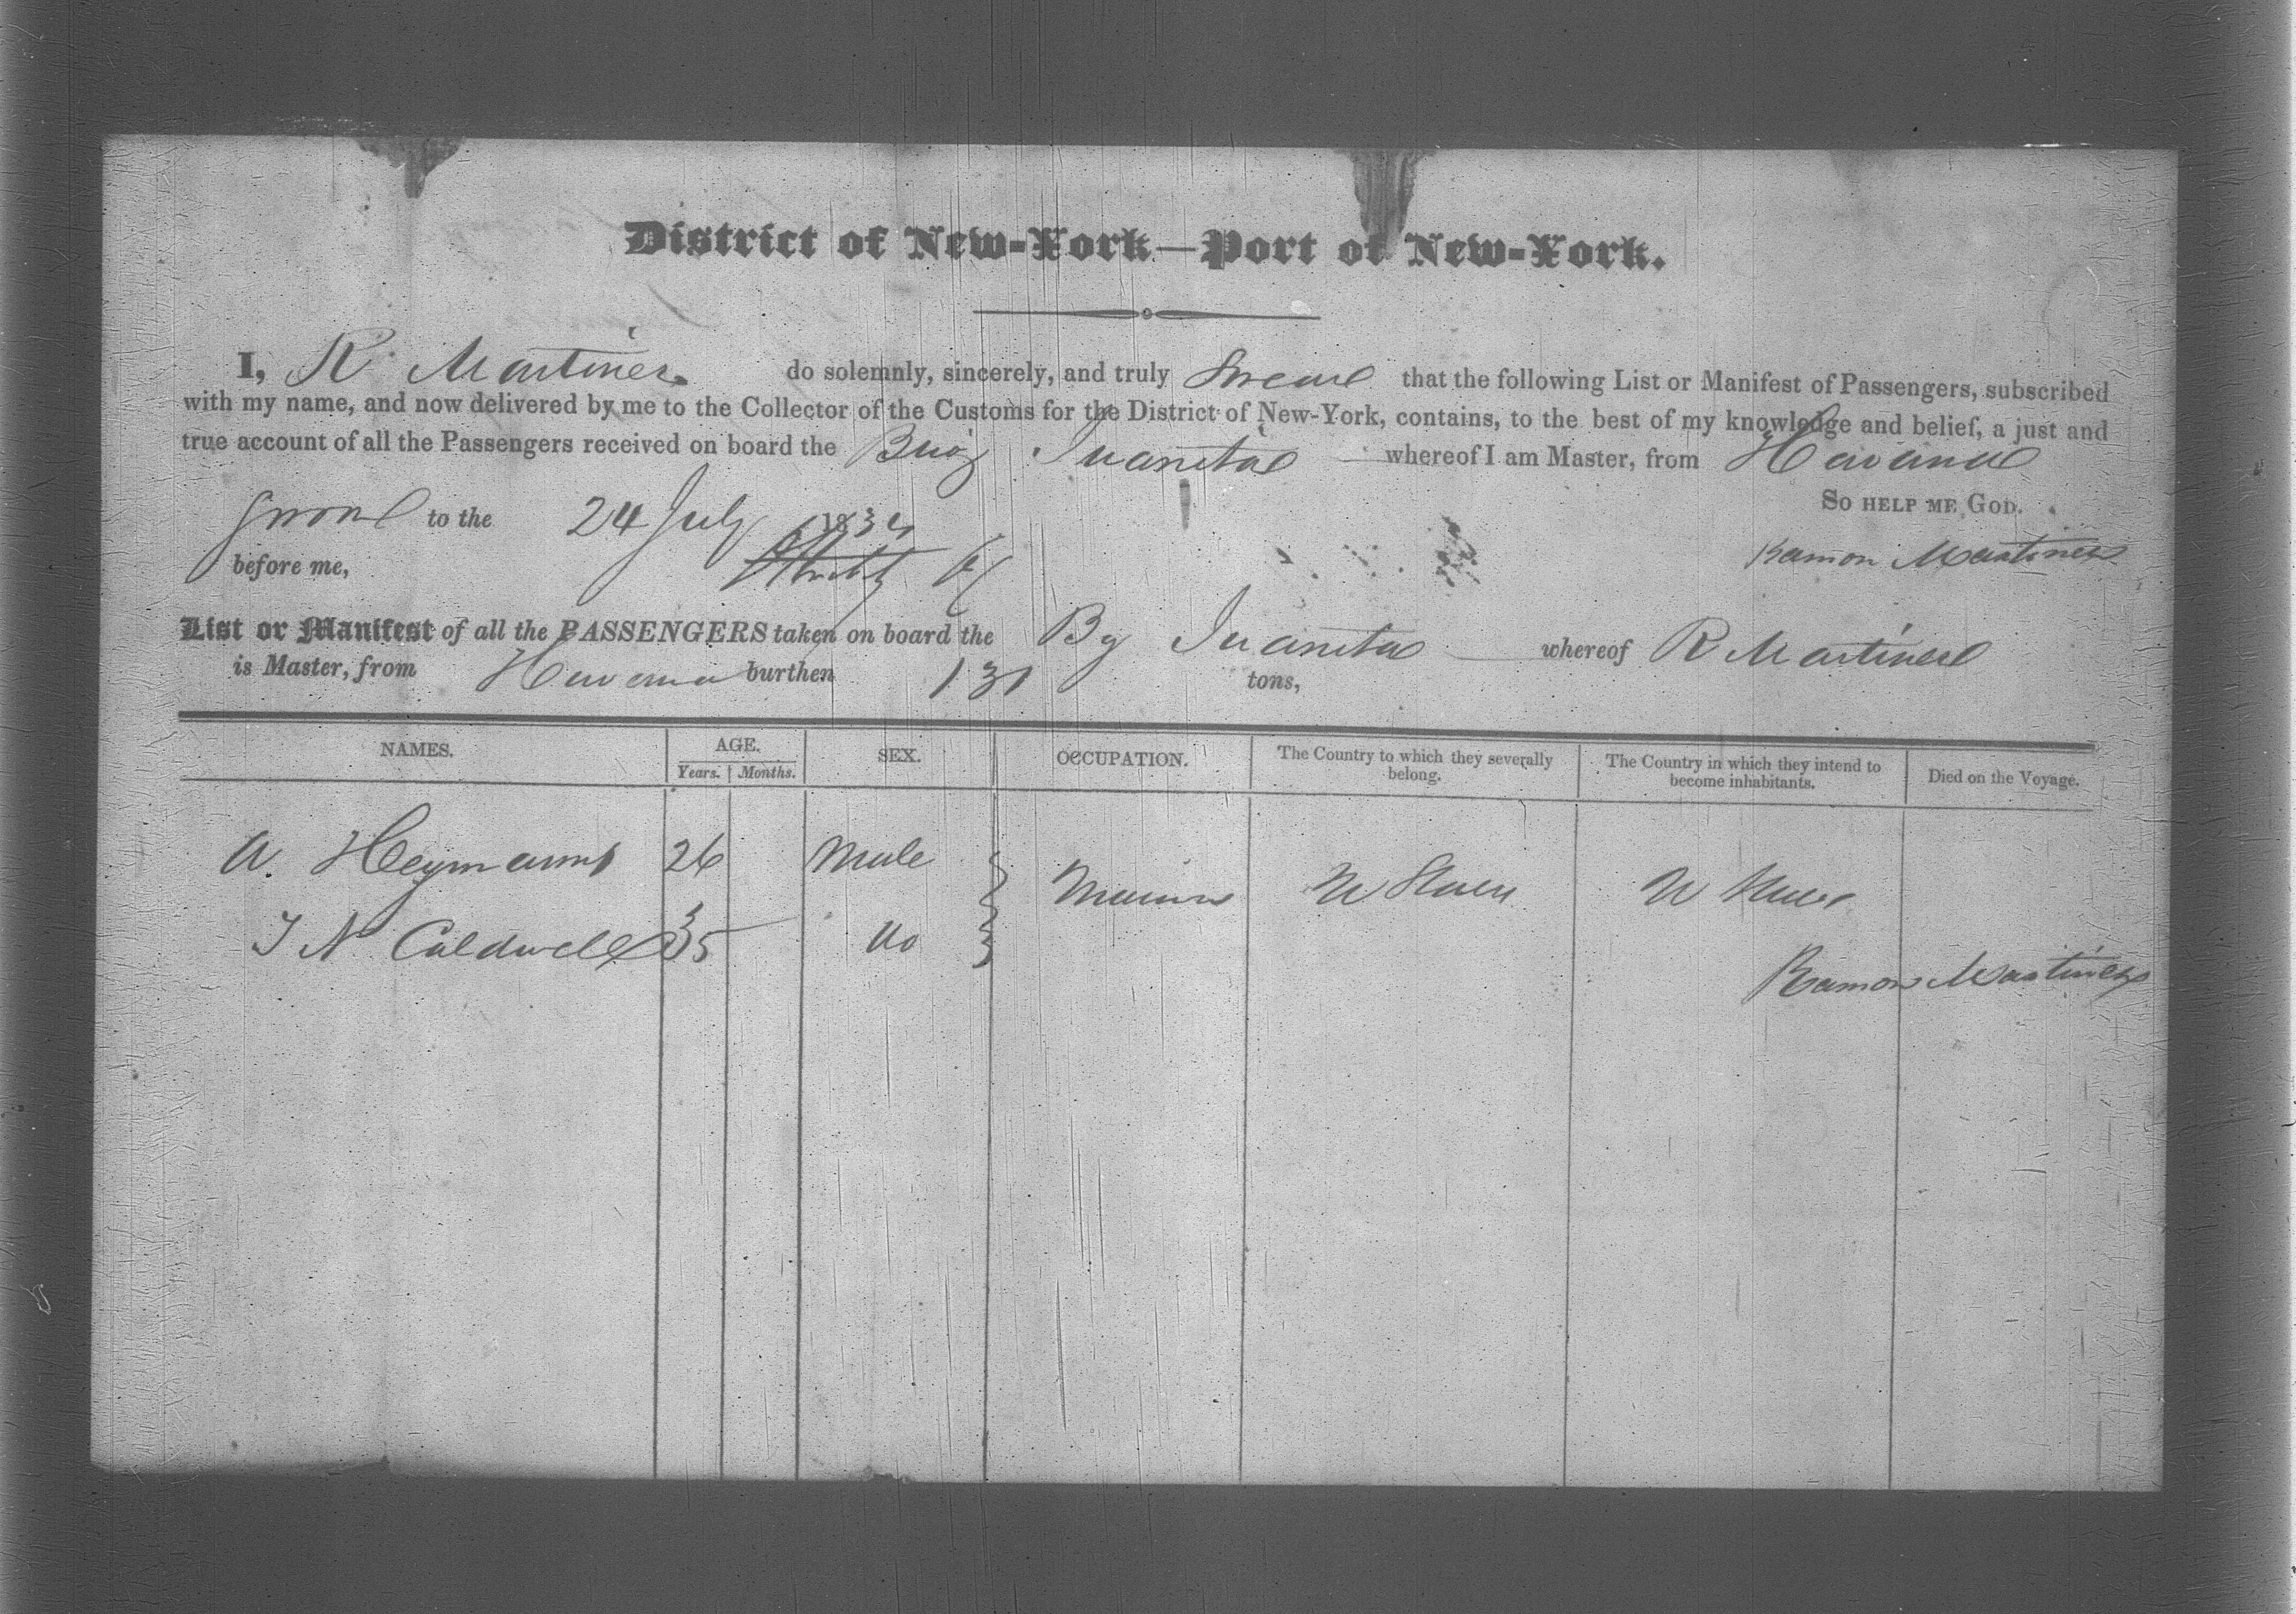 District of New-York—Port of New-York.
I, R Martinez do solemnly, sincerely, and truly Swear that the following List or Manifest of Passengers, subscribed
with my name, and now delivered by me to the Collector of the Customs for the District of New-York, contains, to the best of my knowledge and belief, a just and
true account of all the Passengers received on board the Brig Juanita whereof I am Master, from Havana
So help me God.
Sworn to the 24 July 1834
before me, Ramon Martinez
List or Manifest of all the PASSENGERS taken on board the Bg Juanita whereof R Martinez
is Master, from Havana burthen 131 tons,
NAMES. AGE. SEX. OCCUPATION. The Country to which they severally belong. The Country in which they intend to become inhabitants. Died on the Voyage.
Years. Months.
A. Heymann 26 Male
U States U States
J N Caldwell 35 do
Ramon Martinez